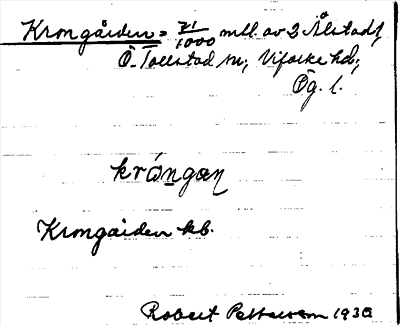 Krongården = 21/1000 mtl. av 2 Ålstad,
Ö. Tollstad sn, Vifolke hd,
Ög. l.
Krongården kb.
Robert Pettersson 1930